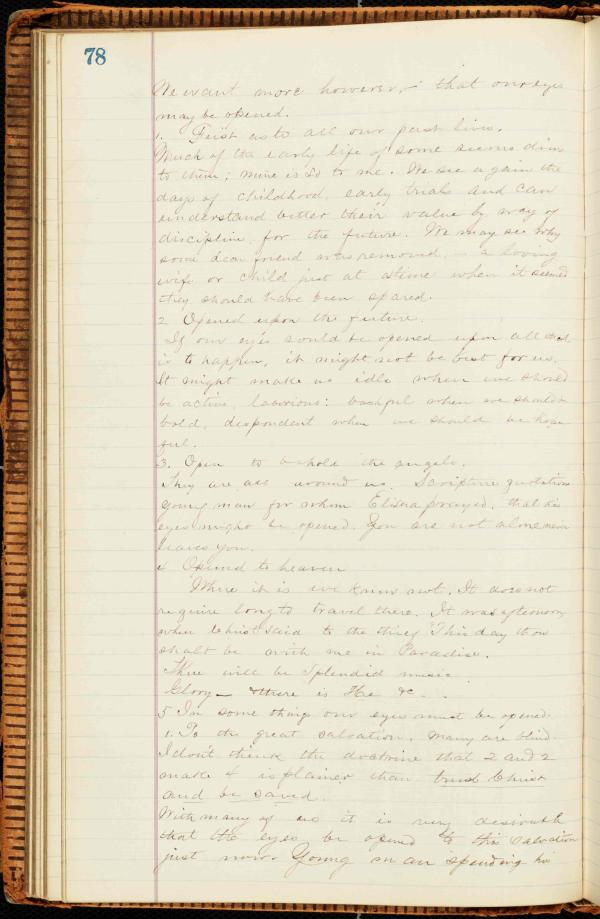 78
We want more however, – that our eyes
may be opened.
1. First as to all our past lives.
Much of the early life of some seems dim
to them; mine is so to me. We see again the
days of childhood, early trials and can
understand better their value by way of
discipline for the future. We may see why
some dear friend was removed, – a loving
wife or child just at a time when it seemed
they should have been spared.
2 Opened upon the future.
If our eyes could be opened upon all that
is to happen, it might not be best for us.
It might make us idle when we should
be active, laborious: bashful when we should
bold, despondent when we should be hope
ful.
3. Open to behold the angels.
They are all around us. Scripture quotations
young man for whom Elisha prayed, that his
eyes might be opened. You are not alone never
leaves you.
4 Opened to heaven
Where it is we know not. It does not
require long to travel there. It was afternoon
when Christ said to the thief "This day thou
shalt be with me in Paradise.
There will be splendid music.
Glory – & there is He &c. –
5 In some things our eyes must be opened.
1. To the great salvation. Many are blind.
I don't think the doctrine that 2 and 2
make 4 is plainer than trust Christ
and be saved.
With many of us it is very
that the eyes be opened to this salvation
just now. Young man spending his